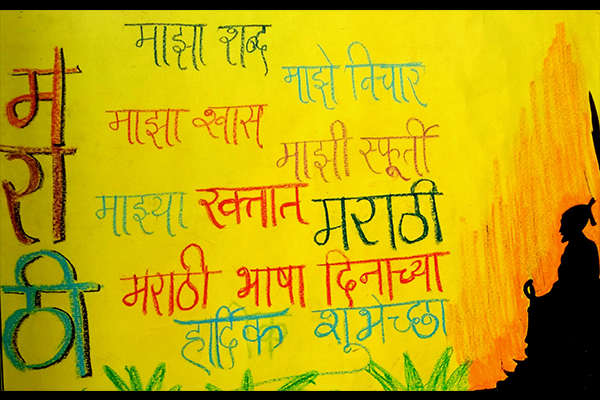 मराठी
माझा शब्द
माझे विचार
माझा श्वास
माझी स्फूर्ती
माझ्या रक्तात मराठी
मराठी भाषा दिनाच्या
हार्दिक शूभेच्छा